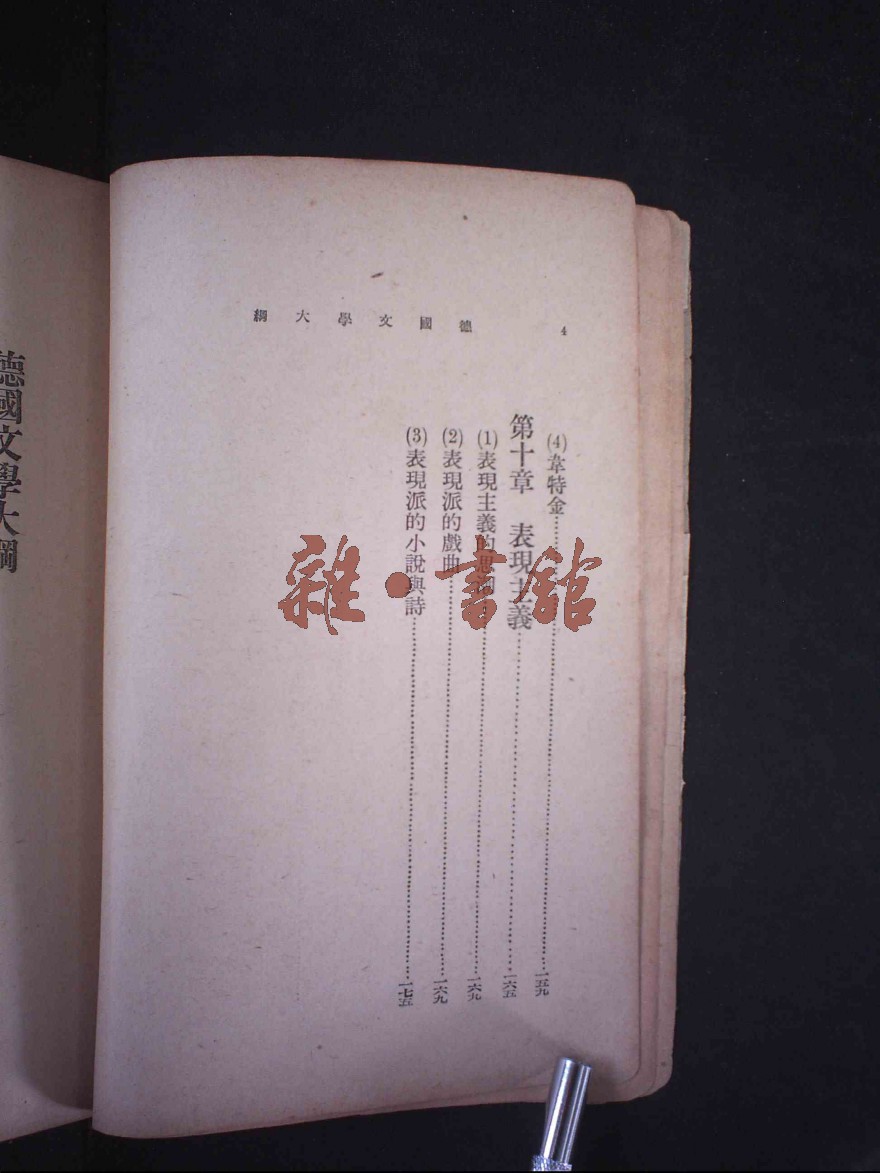 德國文學大綱
4
(4)韋特金……一五九
第十章 表現主義……一六五
(1)表現主義的思潮……一六九
(2)表現派的戲曲……一六九
(3)表現派的小說與詩……一七五
德國文學大綱
雜·書館